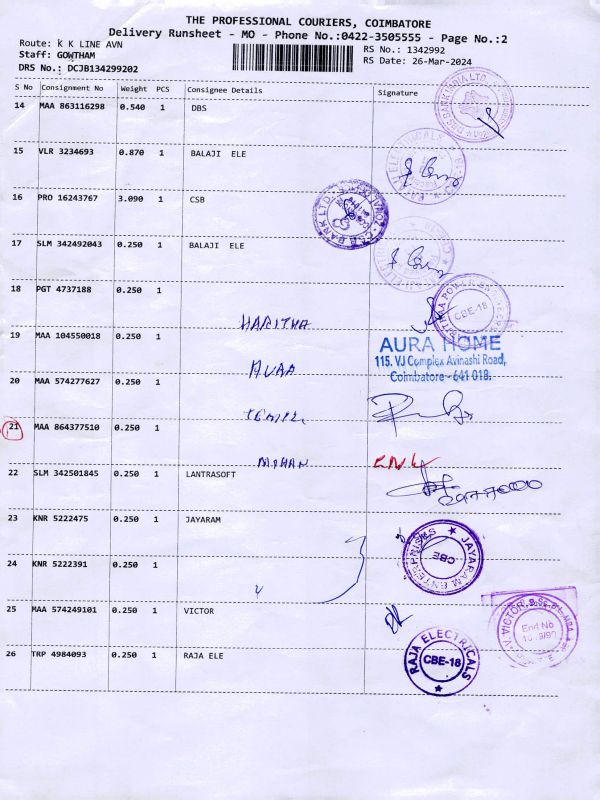 THE PROFESSIONAL COURIERS, COIMBATORE
Delivery Runsheet - MO - Phone No.:0422-3505555 - Page No.:2
Route: K K LINE AVN
RS No.: 1342992
Staff: GOWTHAM
RS Date: 26-Mar-2024
DRS No.: DCJB134299202
S No Consignment No Weight PCS Consignee Details Signature
14 MAA 863116298 0.540 1 DBS
15 VLR 3234693 0.870 1 BALAJI ELE
16 PRO 16243767 3.090 1 CSB
17 SLM 342492043 0.250 1 BALAJI ELE
18 PGT 4737188 0.250 1
HARITHA
CBE-18
19 MAA 104550018 0.250 1
AURA HOME
115. VJ Complex Avinashi Road,
Coimbatore - 641 018.
AURA
20 MAA 574277627 0.250 1
21 MAA 864377510 0.250 1
MOHAN
22 SLM 342501845 0.250 1 LANTRASOFT
23 KNR 5222475 0.250 1 JAYARAM
JAYARAM ENTERPRISES
CBE
24 KNR 5222391 0.250 1
25 MAA 574249101 0.250 1 VICTOR
26 TRP 4984093 0.250 1 RAJA ELE
RAJA ELECTRICALS
CBE-18